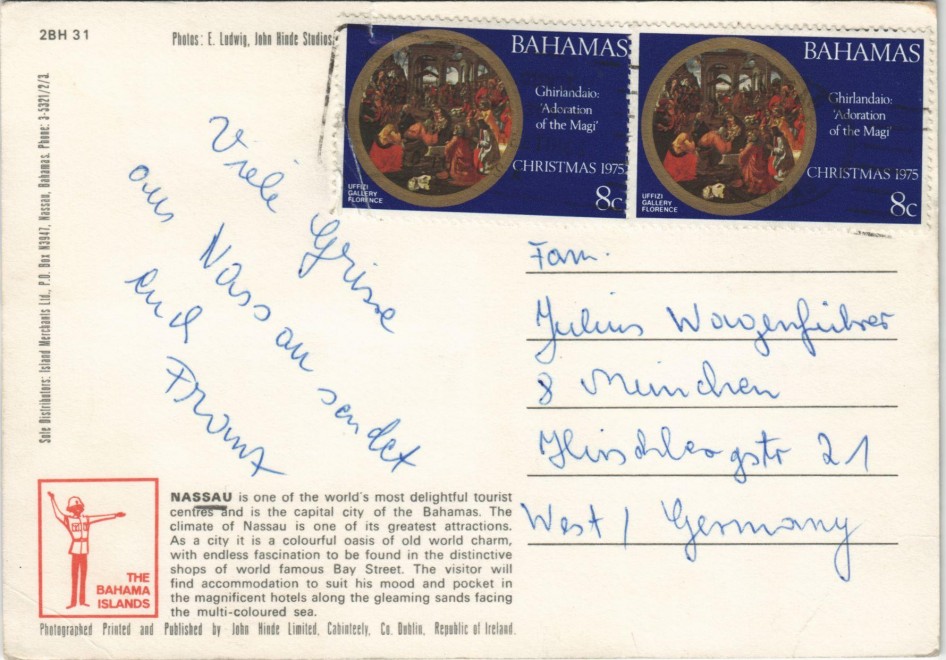 2BH 31
Photos: E. Ludwig, John Hinde Studios.
Sole Distributors: Island Merchants Ltd., P.O. Box N3947, Nassau, Bahamas. Phone: 3-5321/2/3.
BAHAMAS
Ghirlandaio:
'Adoration
of the Magi'
CHRISTMAS 1975
UFFIZI
GALLERY
FLORENCE
8c
BAHAMAS
Ghirlandaio:
'Adoration
of the Magi'
CHRISTMAS 1975
UFFIZI
GALLERY
FLORENCE
8c
Viele Grüsse
aus Nassau sendet
euch
Franz
Fam.
Julius Wagenführer
8 München
Hirschbergstr 21
West / Germany
THE
BAHAMA
ISLANDS
NASSAU is one of the world's most delightful tourist
centres and is the capital city of the Bahamas. The
climate of Nassau is one of its greatest attractions.
As a city it is a colourful oasis of old world charm,
with endless fascination to be found in the distinctive
shops of world famous Bay Street. The visitor will
find accommodation to suit his mood and pocket in
the magnificent hotels along the gleaming sands facing
the multi-coloured sea.
Photographed Printed and Published by John Hinde Limited, Cabinteely, Co. Dublin, Republic of Ireland.